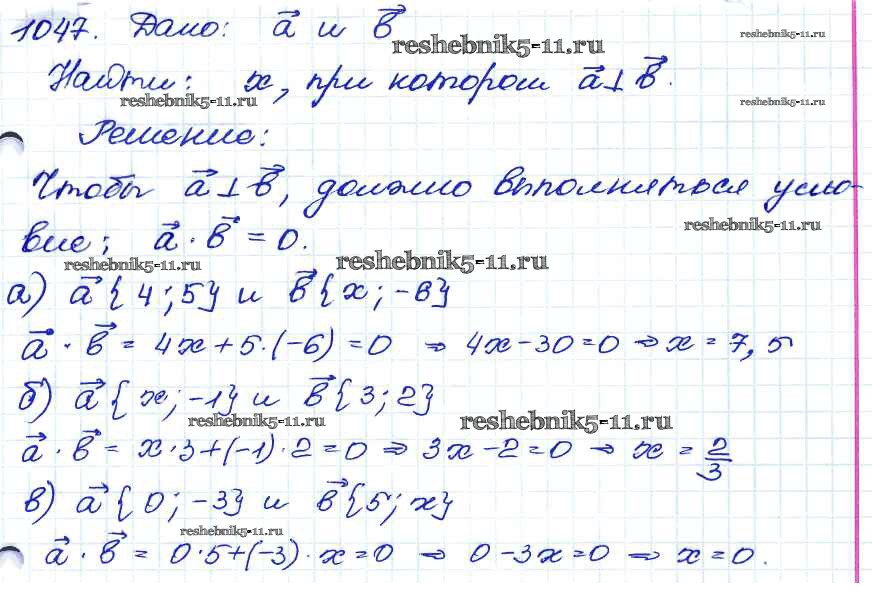 1047. Дано: a⃗ и b⃗
reshebnik5-11.ru
reshebnik5-11.ru
Найти: x, при котором a⃗ ⊥ b⃗.
reshebnik5-11.ru
reshebnik5-11.ru
Решение:
Чтобы a⃗ ⊥ b⃗, должно выполняться усло-
reshebnik5-11.ru
вие: a⃗ · b⃗ = 0.
reshebnik5-11.ru
reshebnik5-11.ru
а) a⃗ {4; 5} и b⃗ {x; -6}
a⃗ · b⃗ = 4x + 5·(-6) = 0 ⇒ 4x - 30 = 0 ⇒ x = 7,5
б) a⃗ {x; -1} и b⃗ {3; 2}
reshebnik5-11.ru
reshebnik5-11.ru
a⃗ · b⃗ = x·3 + (-1)·2 = 0 ⇒ 3x - 2 = 0 ⇒ x = 2/3
в) a⃗ {0; -3} и b⃗ {5; x}
reshebnik5-11.ru
a⃗ · b⃗ = 0·5 + (-3)·x = 0 ⇒ 0 - 3x = 0 ⇒ x = 0.